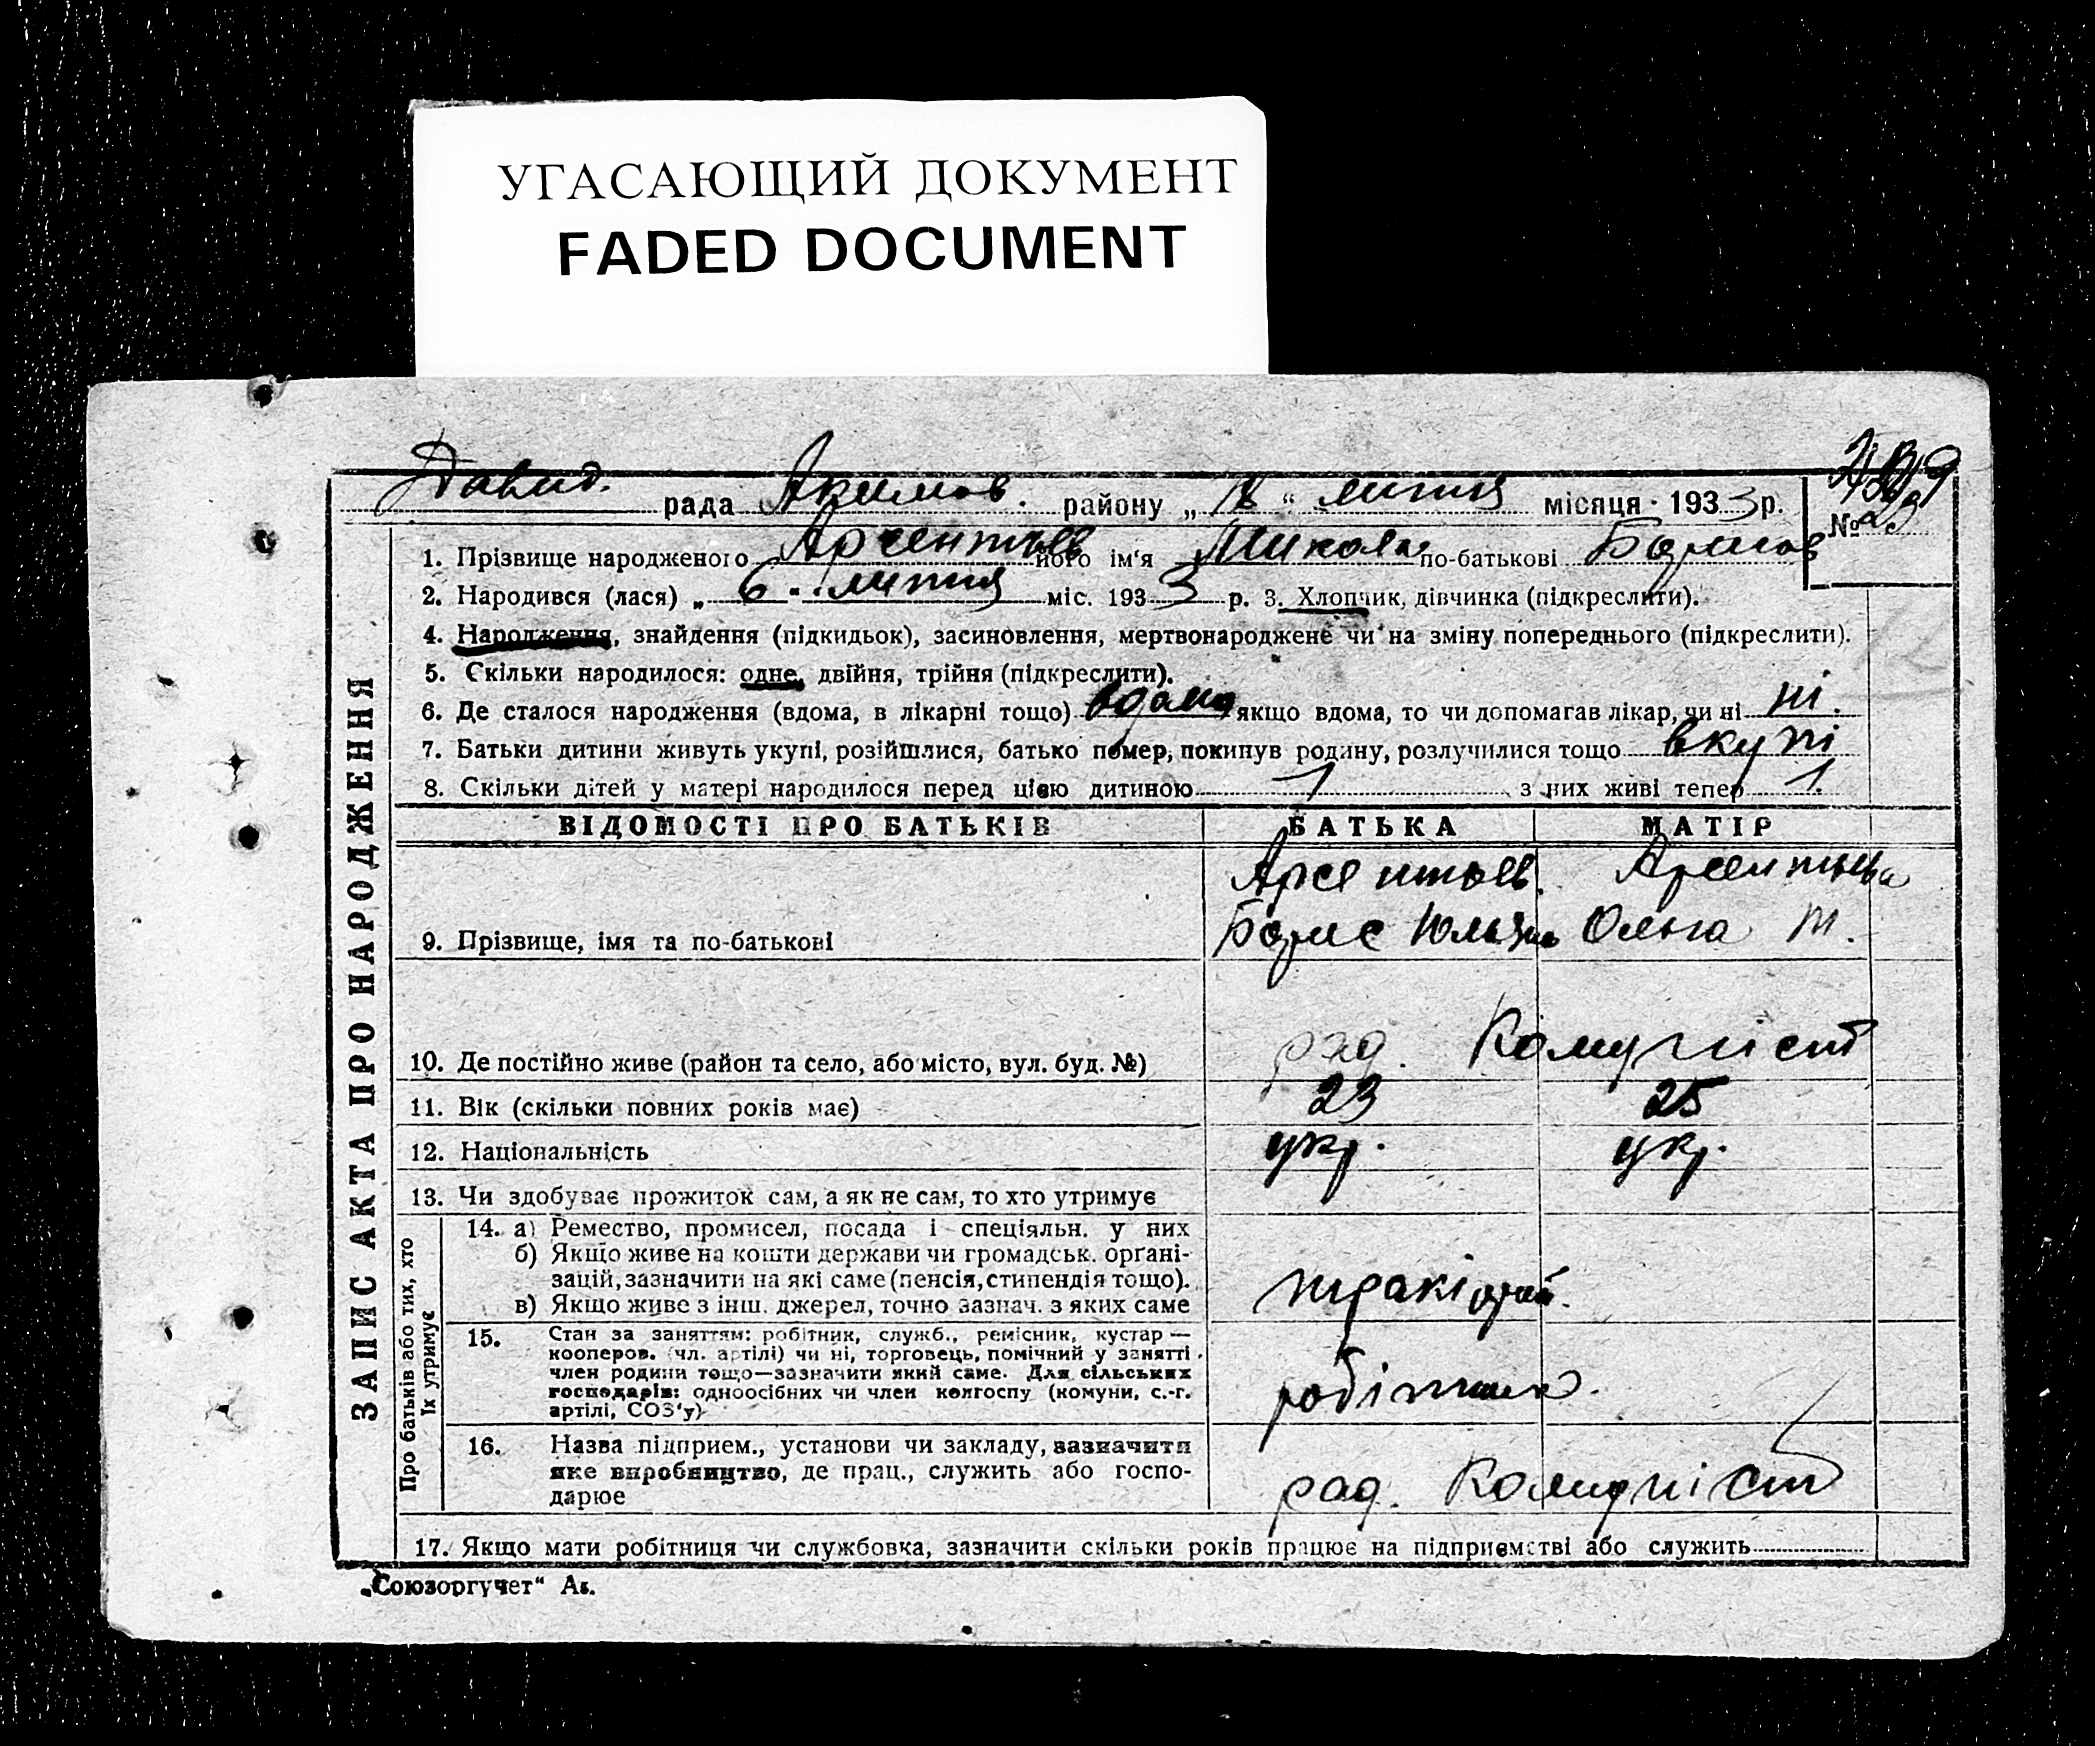 УГАСАЮЩИЙ ДОКУМЕНТ
FADED DOCUMENT
Давид. рада Акимов. району „ “ липня місяця 1933 р.
№ 23
ЗАПИС АКТА ПРО НАРОДЖЕННЯ
1. Прізвище народженого Арсентьев його ім'я Микола по-батькові Борисов
2. Народився (лася) „ 6 " липня міс. 1933 р. 3. Хлопчик, дівчинка (підкреслити).
4. Народження, знайдення (підкидьок), засиновлення, мертвонароджене чи на зміну попереднього (підкреслити).
5. Скільки народилося: одне, двійня, трійня (підкреслити).
6. Де сталося народження (вдома, в лікарні тощо) вдома якщо вдома, то чи допомагав лікар, чи ні ні.
7. Батьки дитини живуть укупі, розійшлися, батько помер, покинув родину, розлучилися тощо вкупі
8. Скільки дітей у матері народилося перед цією дитиною 1 з них живі тепер 1.
ВІДОМОСТІ ПРО БАТЬКІВ БАТЬКА МАТІР
Арсентьев. Арсентьева
9. Прізвище, імя та по-батькові Борис Ольга М.
10. Де постійно живе (район та село, або місто, вул. буд. №) рад. Комуніст
11. Вік (скільки повних років має) 23 25
12. Національність укр. укр.
13. Чи здобуває прожиток сам, а як не сам, то хто утримує
Про батьків або тих, хто
їх утримує
14. а) Ремество, промисел, посада і спеціяльн. у них
б) Якщо живе на кошти держави чи громадськ. орґані-
зацій, зазначити на які саме (пенсія, стипендія тощо).
в) Якщо живе з інш. джерел, точно зазнач. з яких саме
15. Стан за заняттям: робітник, служб., ремісник, кустар —
кооперов. (чл. артілі) чи ні, торговець, помічний у занятті
член родини тощо—зазначити який саме. Для сільських
господарів: одноосібних чи член колгоспу (комуни, с.-г.
артілі, СОЗ'у)
робітник.
16. Назва підприєм., установи чи закладу, зазначити
яке виробництво, де прац., служить або госпо-
дарює
рад. Комуніст
17. Якщо мати робітниця чи службовка, зазначити скільки років працює на підприємстві або служить
„Союзоргучет“